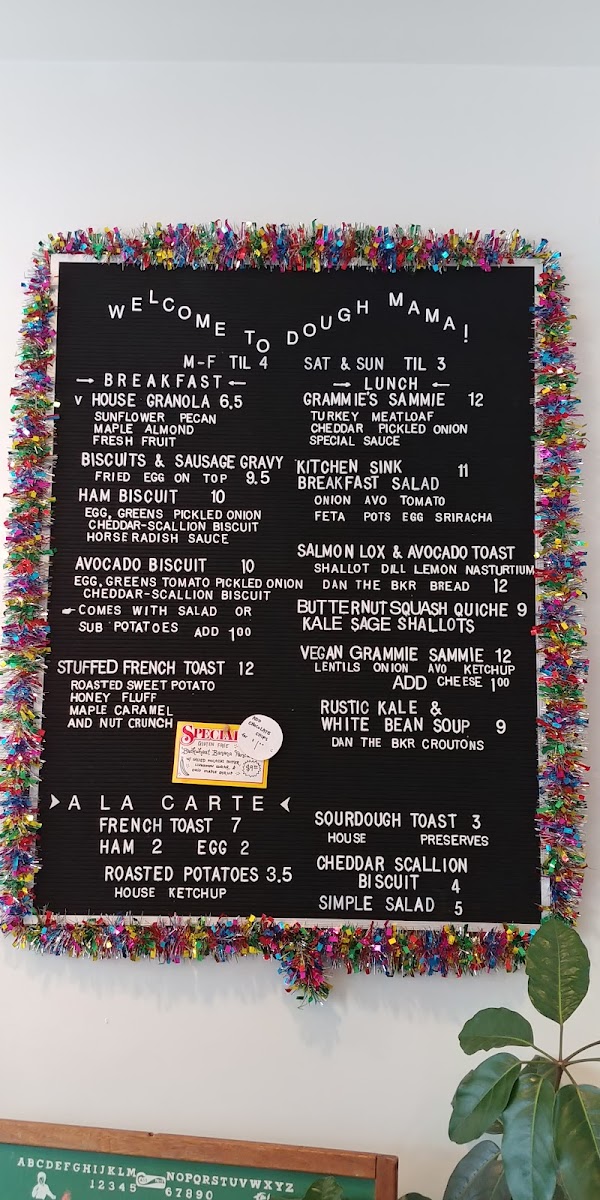 WELCOME TO DOUGH MAMA!
M-F TIL 4 SAT & SUN TIL 3
BREAKFAST
V HOUSE GRANOLA 6.5
SUNFLOWER PECAN
MAPLE ALMOND
FRESH FRUIT
BISCUITS & SAUSAGE GRAVY
FRIED EGG ON TOP 9.5
HAM BISCUIT 10
EGG, GREENS PICKLED ONION
CHEDDAR-SCALLION BISCUIT
HORSERADISH SAUCE
AVOCADO BISCUIT 10
EGG, GREENS TOMATO PICKLED ONION
CHEDDAR-SCALLION BISCUIT
COMES WITH SALAD OR
SUB POTATOES ADD 1.00
STUFFED FRENCH TOAST 12
ROASTED SWEET POTATO
HONEY FLUFF
MAPLE CARAMEL
AND NUT CRUNCH
SPECIAL
GLUTEN FREE
Buckwheat Banana
$9.00
ADD
CHOCOLATE
CHIPS
LUNCH
GRAMMIE'S SAMMIE 12
TURKEY MEATLOAF
CHEDDAR PICKLED ONION
SPECIAL SAUCE
KITCHEN SINK 11
BREAKFAST SALAD
ONION AVO TOMATO
FETA POTS EGG SRIRACHA
SALMON LOX & AVOCADO TOAST
SHALLOT DILL LEMON NASTURTIUM
DAN THE BKR BREAD 12
BUTTERNUT SQUASH QUICHE 9
KALE SAGE SHALLOTS
VEGAN GRAMMIE SAMMIE 12
LENTILS ONION AVO KETCHUP
ADD CHEESE 1.00
RUSTIC KALE &
WHITE BEAN SOUP 9
DAN THE BKR CROUTONS
A LA CARTE
FRENCH TOAST 7
HAM 2 EGG 2
ROASTED POTATOES 3.5
HOUSE KETCHUP
SOURDOUGH TOAST 3
HOUSE PRESERVES
CHEDDAR SCALLION
BISCUIT 4
SIMPLE SALAD 5
ABCDEFGHIJKLM NOPQRSTUVWXYZ
12345 67890